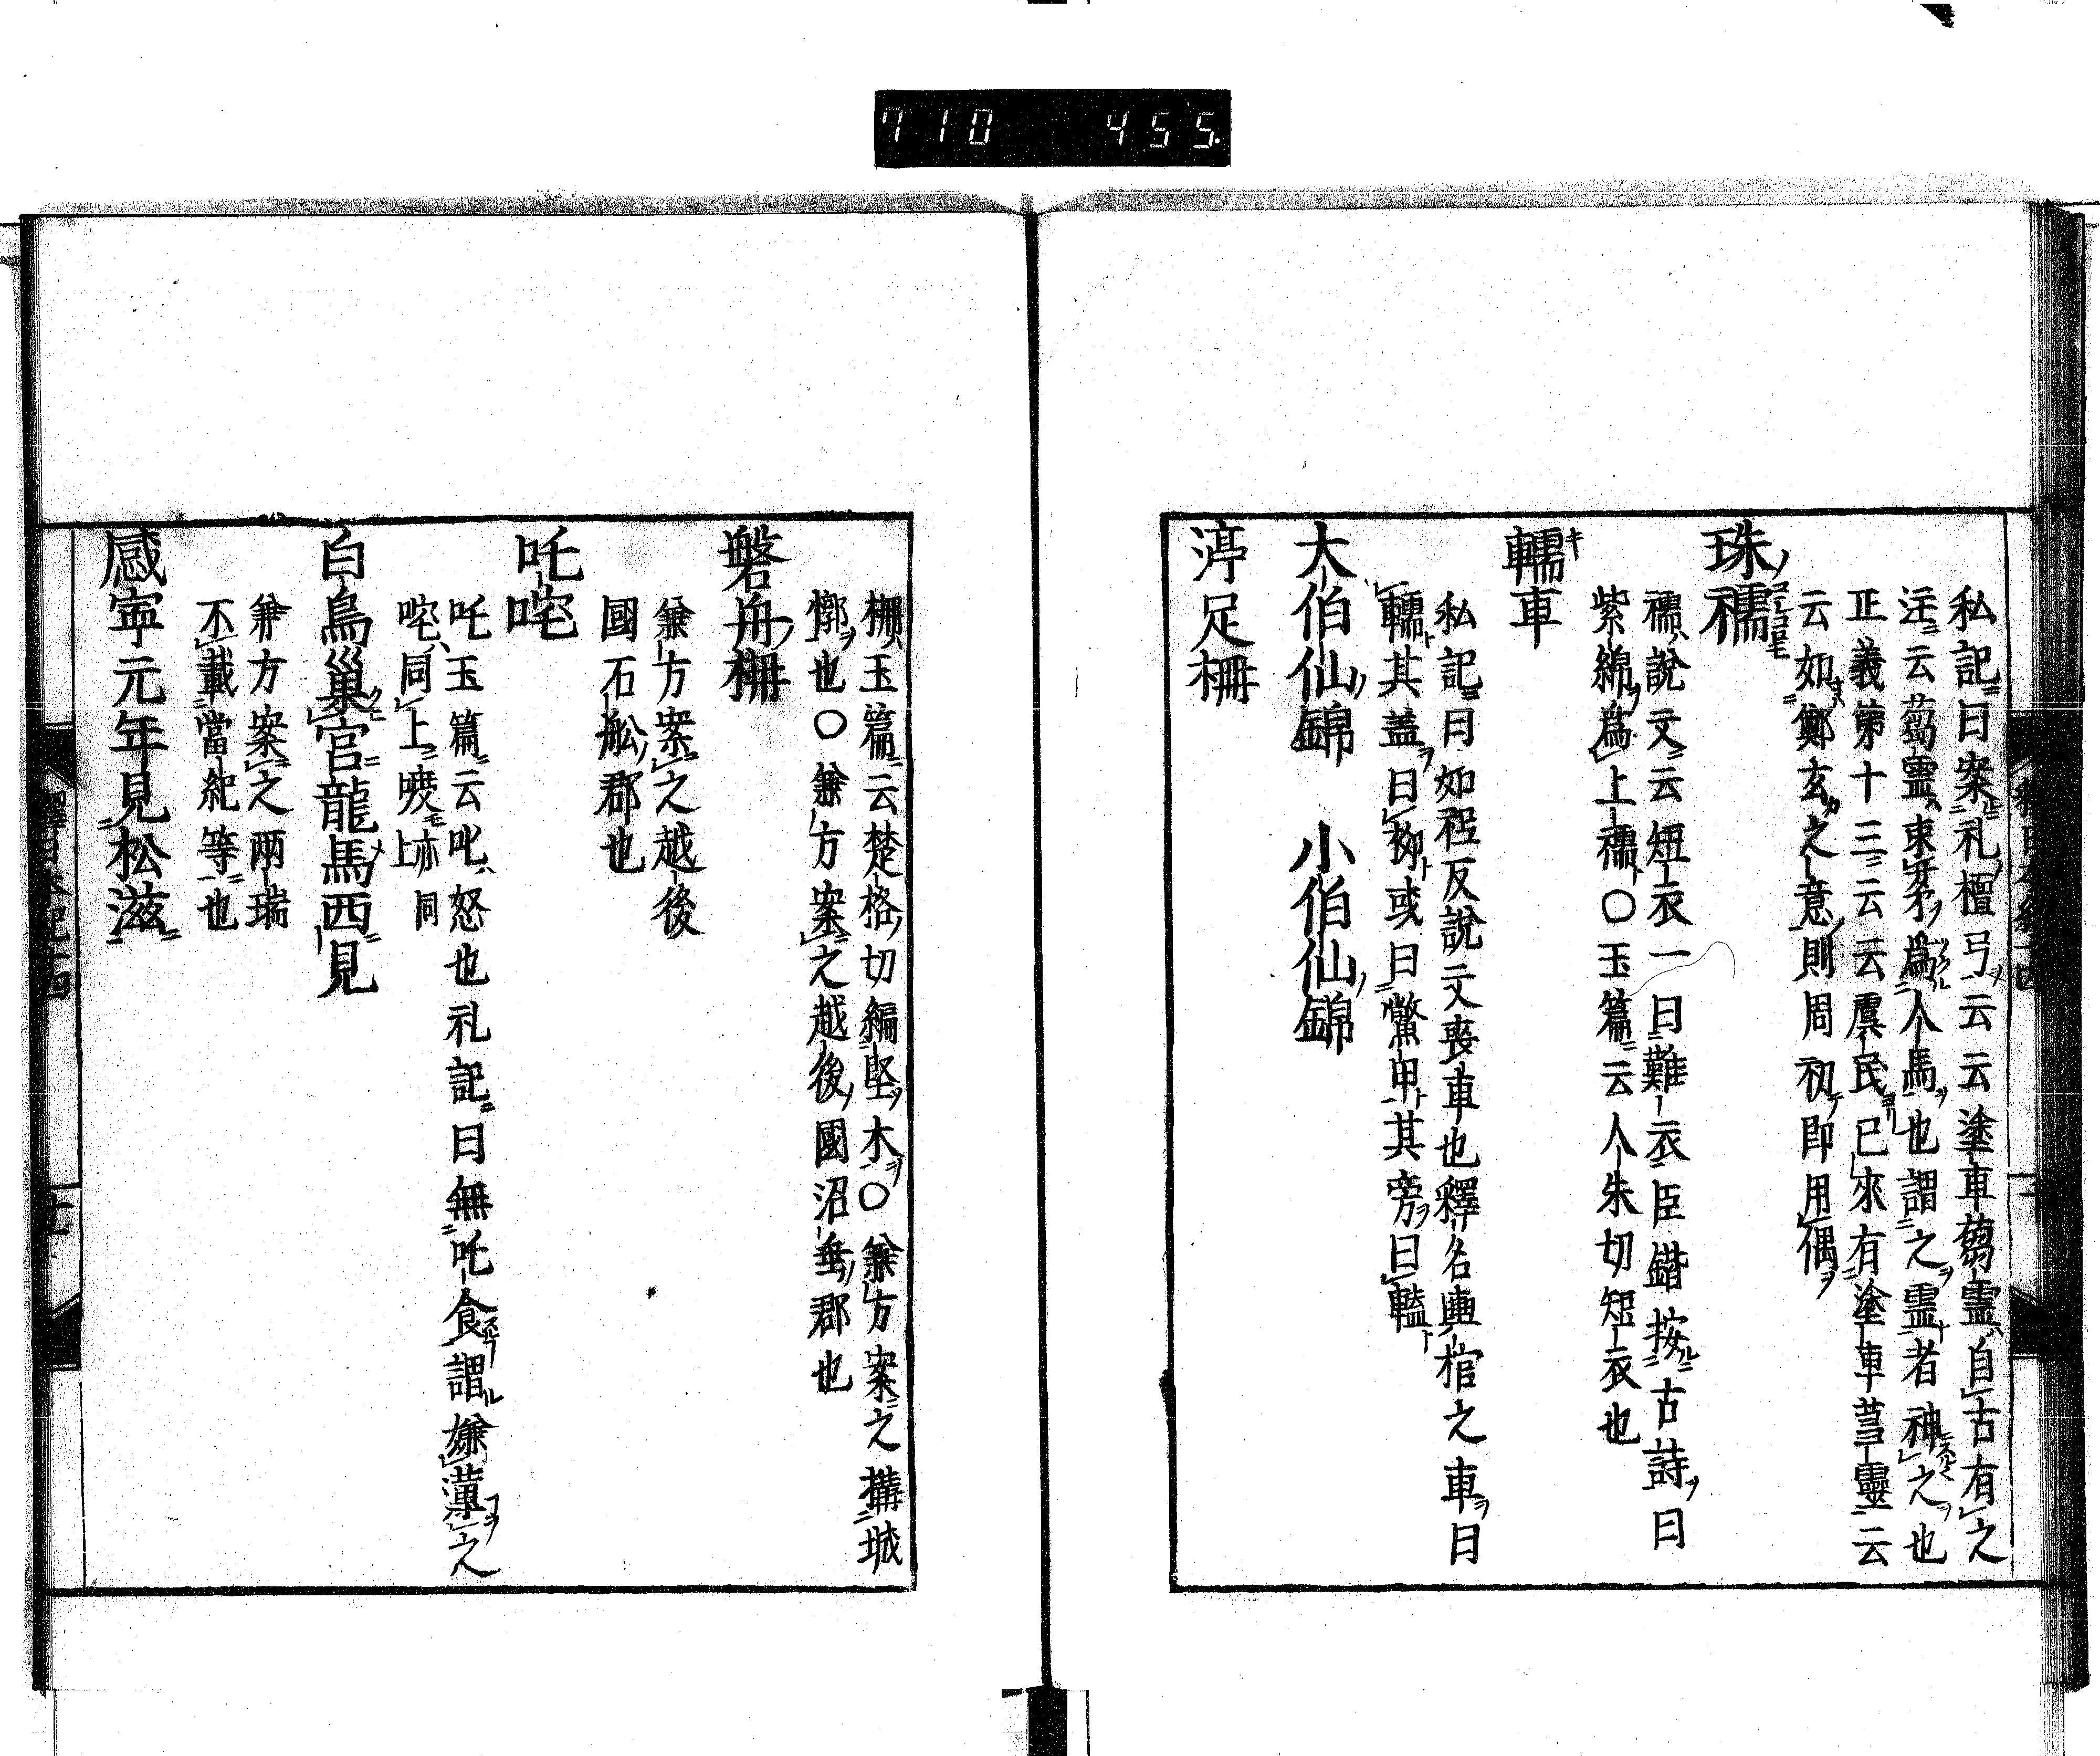 710 455.
私記曰案礼檀弓云云塗車蒭靈自古有之
注云蒭靈束茅爲人馬也謂之靈者神之也
正義第十三云云虞民已來有塗車蒭靈云
云如鄭玄之意則周初即用偶
珠襦
襦說文云短衣一曰難衣臣鍇按古詩曰
紫綿爲上襦○玉篇云人朱切短衣也
轜車
私記曰如秹反說文喪車也釋名輿棺之車曰
轜其盖曰柳或曰鱉甲其旁曰轞
大伯仙錦 小伯仙錦
渟足柵
柵玉篇云楚格切編竪木○兼方案之搆城
㙮也○兼方案之越後國沼垂郡也
磐舟柵
兼方案之越後
國石舩郡也
吒咤
吒玉篇云叱怒也礼記曰無吒食謂嫌薄之
咤同上
白烏巢宮龍馬西見
兼方案之兩瑞
不載當紀等也
感寧元年見松滋